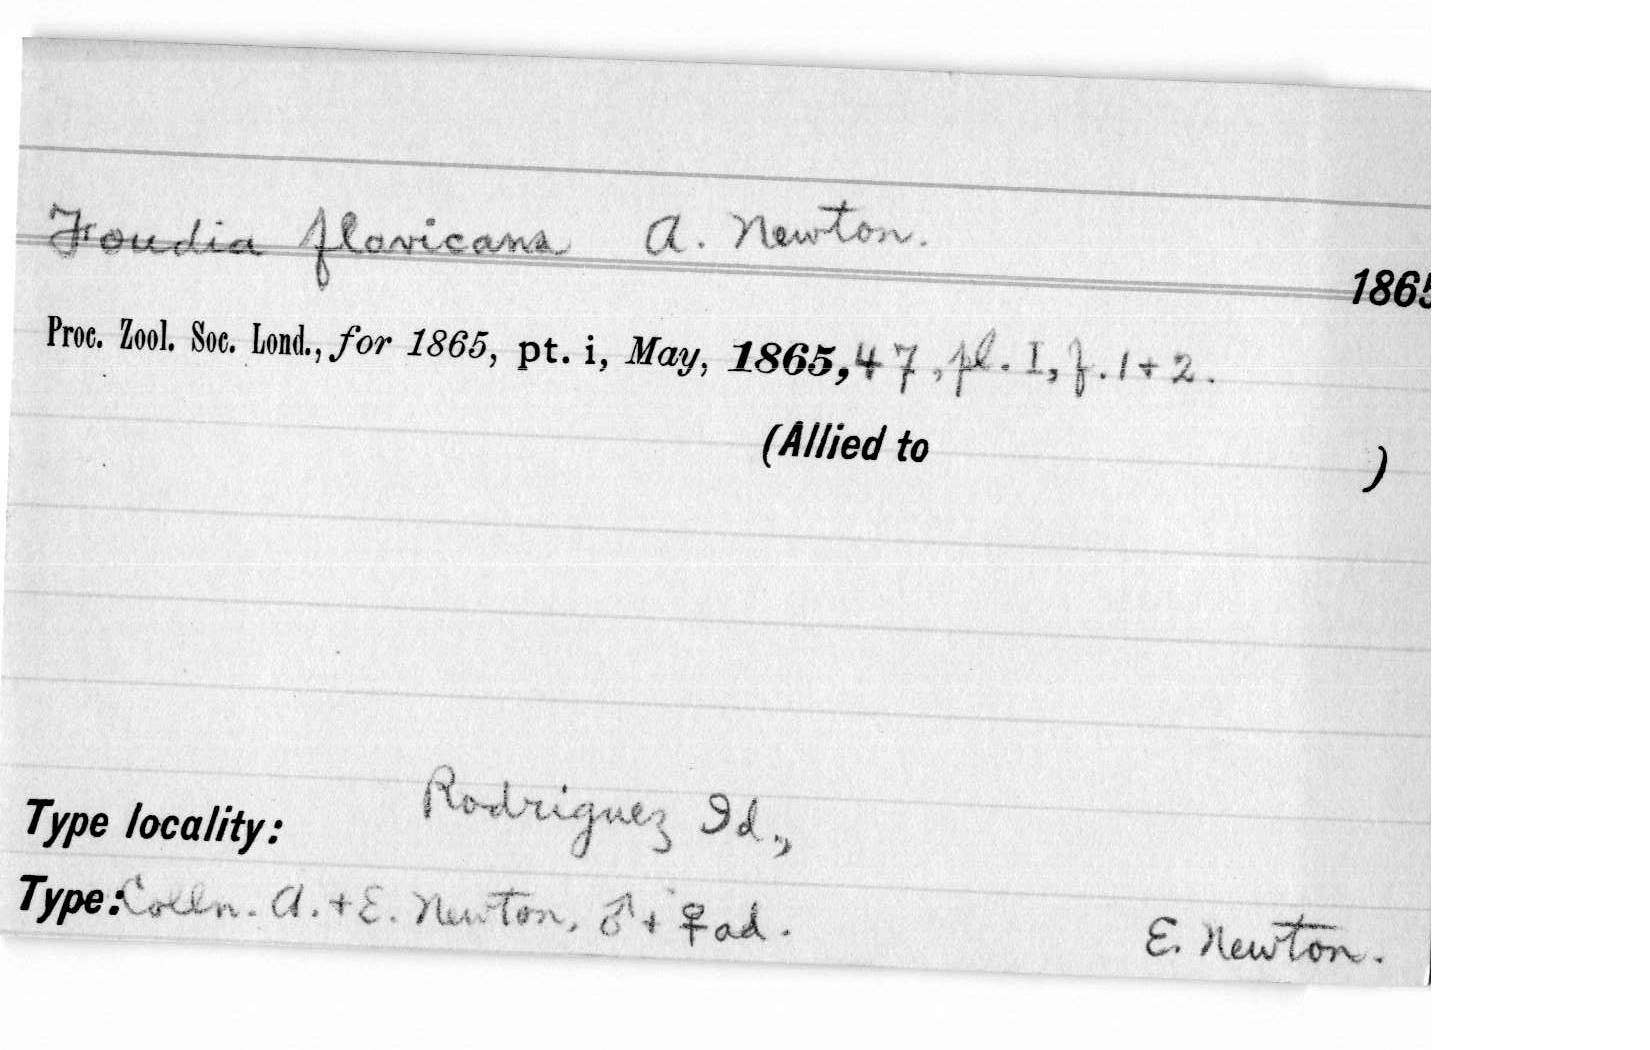 Foudia flavicans A. Newton.
1865
Proc. Zool. Soc. Lond., for 1865, pt. i, May, 1865, 47, pl. I, f. 1 + 2.
(Allied to )
Type locality: Rodriguez Id.,
Type: Colln. A. + E. Newton, ♂ + ♀ ad. E. Newton.